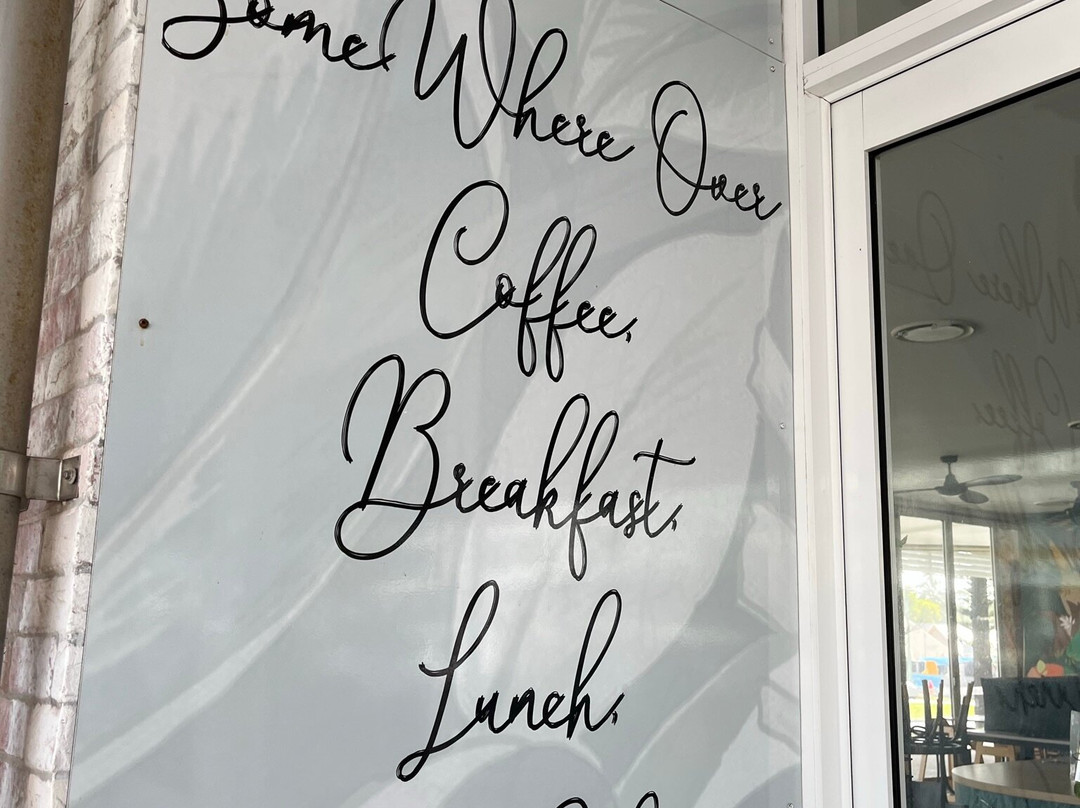 Some Where Over
Coffee,
Breakfast,
Lunch,